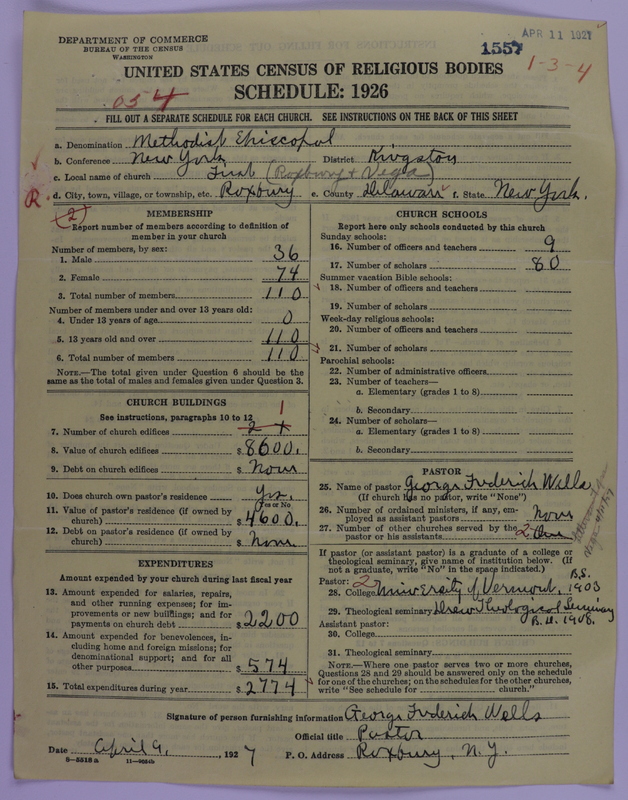 DEPARTMENT OF COMMERCE
BUREAU OF THE CENSUS
WASHINGTON
APR 11 1927
1557
1-3-4
UNITED STATES CENSUS OF RELIGIOUS BODIES
054
SCHEDULE: 1926
FILL OUT A SEPARATE SCHEDULE FOR EACH CHURCH. SEE INSTRUCTIONS ON THE BACK OF THIS SHEET
a. Denomination Methodist Episcopal
b. Conference New York District Kingston
c. Local name of church First (Roxbury & Vega)
R. d. City, town, village, or township, etc. Roxbury e. County Delaware f. State New York.
(2)
MEMBERSHIP
Report number of members according to definition of
member in your church
Number of members, by sex:
1. Male 36
2. Female 74
3. Total number of members 110
Number of members under and over 13 years old:
4. Under 13 years of age 0
5. 13 years old and over 110
6. Total number of members 110
NOTE.—The total given under Question 6 should be
the same as the total of males and females given under Question 3.
CHURCH BUILDINGS
See instructions, paragraphs 10 to 12
1
7. Number of church edifices
8. Value of church edifices $ 8600.
9. Debt on church edifices $ None
10. Does church own pastor's residence Yes.
Yes or No
11. Value of pastor's residence (if owned by
church) $ 4600.
12. Debt on pastor's residence (if owned by
church) $ None
EXPENDITURES
Amount expended by your church during last fiscal year
13. Amount expended for salaries, repairs,
and other running expenses; for im-
provements or new buildings; and for
payments on church debt $ 2200
14. Amount expended for benevolences, in-
cluding home and foreign missions; for
denominational support; and for all
other purposes $ 574
15. Total expenditures during year $ 2774
CHURCH SCHOOLS
Report here only schools conducted by this church
Sunday schools:
16. Number of officers and teachers 9
17. Number of scholars 80
Summer vacation Bible schools:
18. Number of officers and teachers
19. Number of scholars
Week-day religious schools:
20. Number of officers and teachers
21. Number of scholars
Parochial schools:
22. Number of administrative officers
23. Number of teachers—
a. Elementary (grades 1 to 8)
b. Secondary
24. Number of scholars—
a. Elementary (grades 1 to 8)
b. Secondary
PASTOR
25. Name of pastor George Frederich Wells
(If church has no pastor, write "None")
26. Number of ordained ministers, if any, em-
ployed as assistant pastors None
27. Number of other churches served by the
pastor or his assistants 2 One
If pastor (or assistant pastor) is a graduate of a college or
theological seminary, give name of institution below. (If
not a graduate, write "No" in the space indicated.)
Pastor: 2
28. College University of Vermont, B.S. 1903
29. Theological seminary Drew Theological Seminary
B.D. 1908.
Assistant pastor:
30. College
31. Theological seminary
NOTE.—Where one pastor serves two or more churches,
Questions 28 and 29 should be answered only on the schedule
for one of the churches; on the schedules for the other churches,
write "See schedule for church."
Signature of person furnishing information George Frederich Wells
Official title Pastor
Date April 9, 1927 P. O. Address Roxbury, N.Y.
8-5518 a 11-9034b